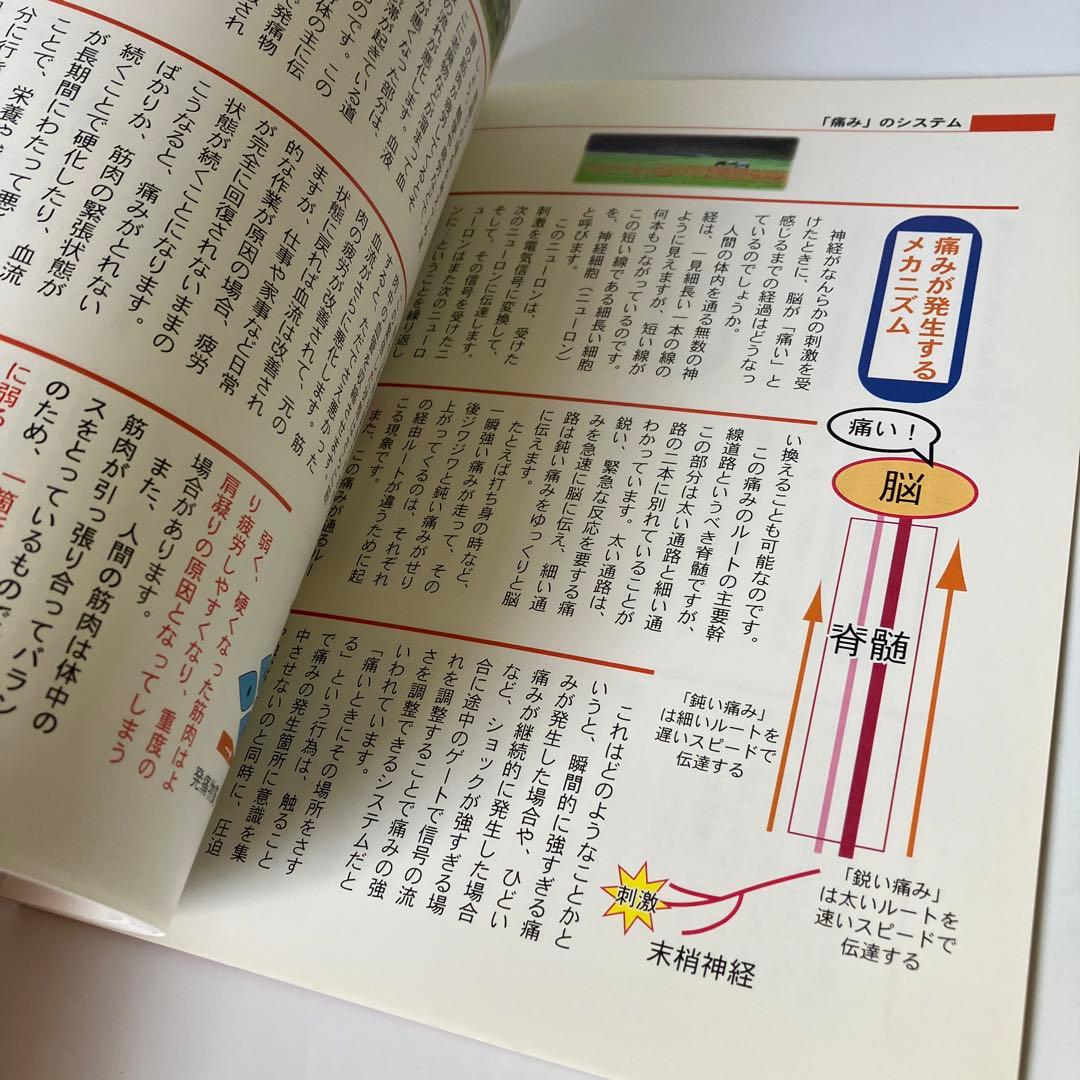 「痛み」のシステム
痛みが発生する
メカニズム
神経がなんらかの刺激を受
けたときに、脳が「痛い」と
感じるまでの経過はどうなっ
ているのでしょうか。
人間の体内を通る無数の神
経は、一見細長い一本の線の
ように見えますが、短い線が
何本もつながっているのです。
この短い線である細長い細胞
を、神経細胞（ニューロン）
と呼びます。
このニューロンは、受けた
刺激を電気信号に変換して、
次のニューロンに伝達します。
そして、その信号を受けたニ
ューロンはまた次のニューロ
ンに…ということを繰り返し
い換えることも可能なのです。
この痛みのルートの主要幹
線道路というべき脊髄ですが、
この部分は太い通路と細い通
路の二本に別れていることが
わかっています。太い通路は、
鋭い、緊急な反応を要する痛
みを急速に脳に伝え、細い通
路は鈍い痛みをゆっくりと脳
に伝えます。
たとえば打ち身の時など、
一瞬強い痛みが走って、その
後ジワジワと鈍い痛みがせり
上がってくるのは、それぞれ
の経由ルートが違うために起
こる現象です。
また、この痛みが通るルー
これはどのようなことかと
いうと、瞬間的に強すぎる痛
みが発生した場合や、ひどい
痛みが継続的に発生した場合
など、ショックが強すぎる場
合に途中のゲートで信号の流
れを調整することで痛みの強
さを調整できるシステムだと
いわれています。
「痛いときにその場所をさす
る」という行為は、触ること
で痛みの発生箇所に意識を集
中させないのと同時に、圧迫
痛い！
脳
脊髄
「鈍い痛み」
は細いルートを
遅いスピードで
伝達する
「鋭い痛み」
は太いルートを
速いスピードで
伝達する
刺激
末梢神経
血流がさらに悪化します。筋
肉の疲労が改善されて、元の
状態に戻れば血流は改善され
ますが、仕事や家事など日常
的な作業が原因の場合、疲労
が完全に回復されないままの
状態が続くことになります。
こうなると、痛みがとれない
ばかりか、筋肉の緊張状態が
続くことで硬化したり、血流
が長期間にわたって悪
ことで、栄養や
分に行き
り弱く、硬くなった筋肉はよ
り疲労しやすくなり、重度の
肩凝りの原因となってしまう
場合があります。
また、人間の筋肉は体中の
筋肉が引っ張り合ってバラン
スをとっているもので
のため、一箇
に弱
発痛物